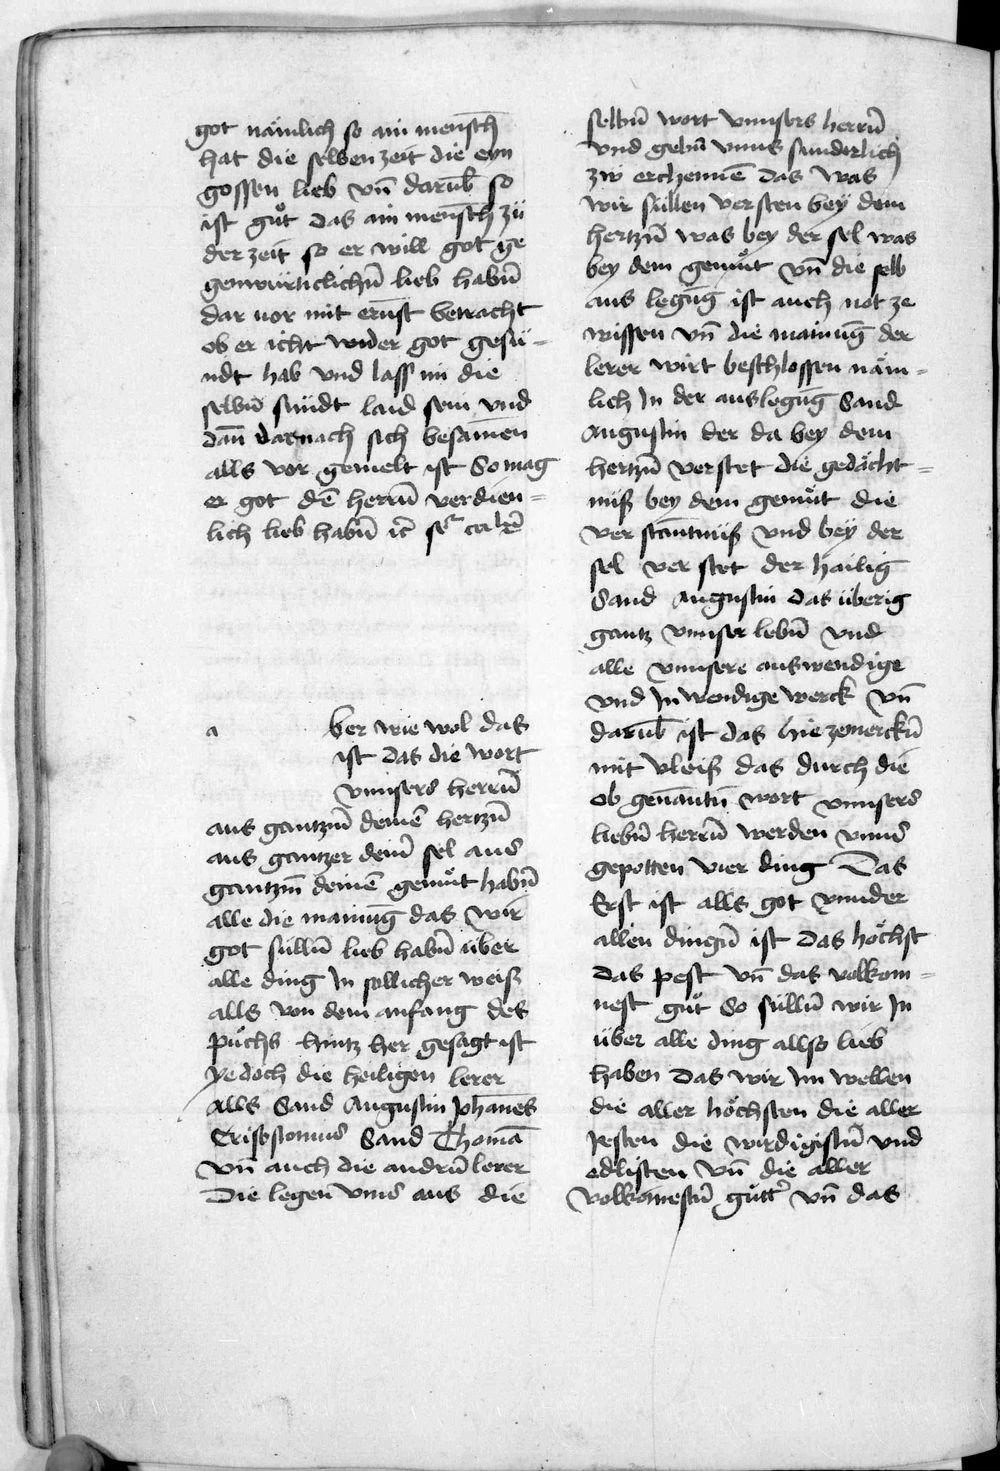 got nämlich so ain mensch
hat die selben zeit die eyn
gossen lieb vn̄ darub̄ so
ist guͦt das ain mensch zü
der zeit so er will got ge
genwürticlichn̄ lieb habn̄
dar vor mit ernst betracht
ob er icht wider got gesü-
ndt hab vnd lass im die
selbn̄ sündt laid sein vnd
dan̄ darnach sich besamen
alls vor gemelt ist So mag
er got dē herrn̄ verdien=
lich lieb habn̄
a ber wie wol das
ist das die wort
vnnsers herrn̄
aus gantzm̄ deinē hertzn̄
aus gantzer dein̄ sel aus
gantzm̄ deinē gemuͤt habn̄
alle die mainuḡ das wir
got sülln̄ lieb habn̄ über
alle ding In sollicher weiß
alls von dem anfang des
puͤchs hintz her gesagt ist
Yedoch die heiligen lerer
alls Sand Augustin Johanes
Crisostomus Sand Thomā
vn̄ auch die andrn̄ lerer
Die legen vnns aus die
selbn̄ wort vnnsers herrn̄
vnd gebn̄ vnns sunderlich
zw erchennē das was
wir süllen versten bey dem
hertzn̄ was bey der sel was
bey dem gemuͤt vn̄ die selb
aus leguḡ ist auch not ze
wissen vn̄ die mainuḡ der
lerer wirt beschlossen näm=
lich In der ausleguḡ Sand
Augustin der da bey dem
hertzn̄ verstet die gedächt=
nüß bey dem gemuͤt die
verstantnüß vnd bey der
sel verstet der hailig
Sand Augustin das überig
gantz vnnser lebn̄ vnd
alle vnnsere auswendige
vnd Inwendige werck vn̄
darub̄ ist das hie zemerckn̄
mit vleiß das durch die
ob genantn̄ wort vnnsers
liebn̄ herrn̄ werden vnns
gepotten vier ding Das
Erst ist alls got vnnder
allen dingn̄ ist das höchst
das pest vn̄ das volkom=
nest guͦt So sülln̄ wir In
über alle ding allso lieb
haben das wir Im wellen
die aller höchsten die aller
pesten die wirdigistn̄ vnd
edlisten vn̄ die aller
volkomestn̄ guͤtter vn̄ das